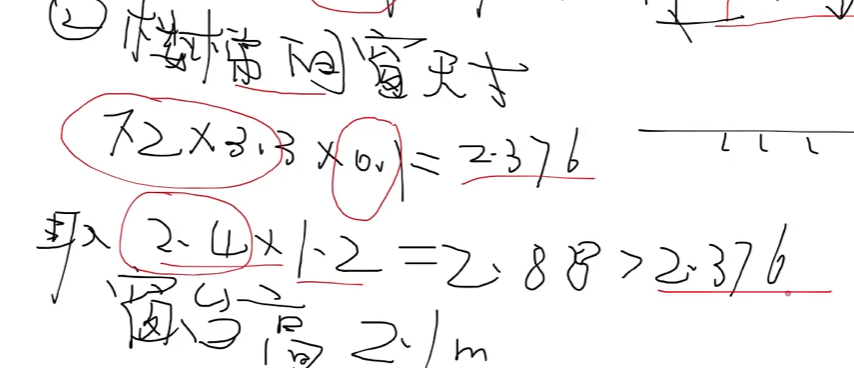 ② 楼梯间窗尺寸
7.2×3.3×0.1=2.376
取 2.4×1.2=2.88>2.376
窗台高 2.1m